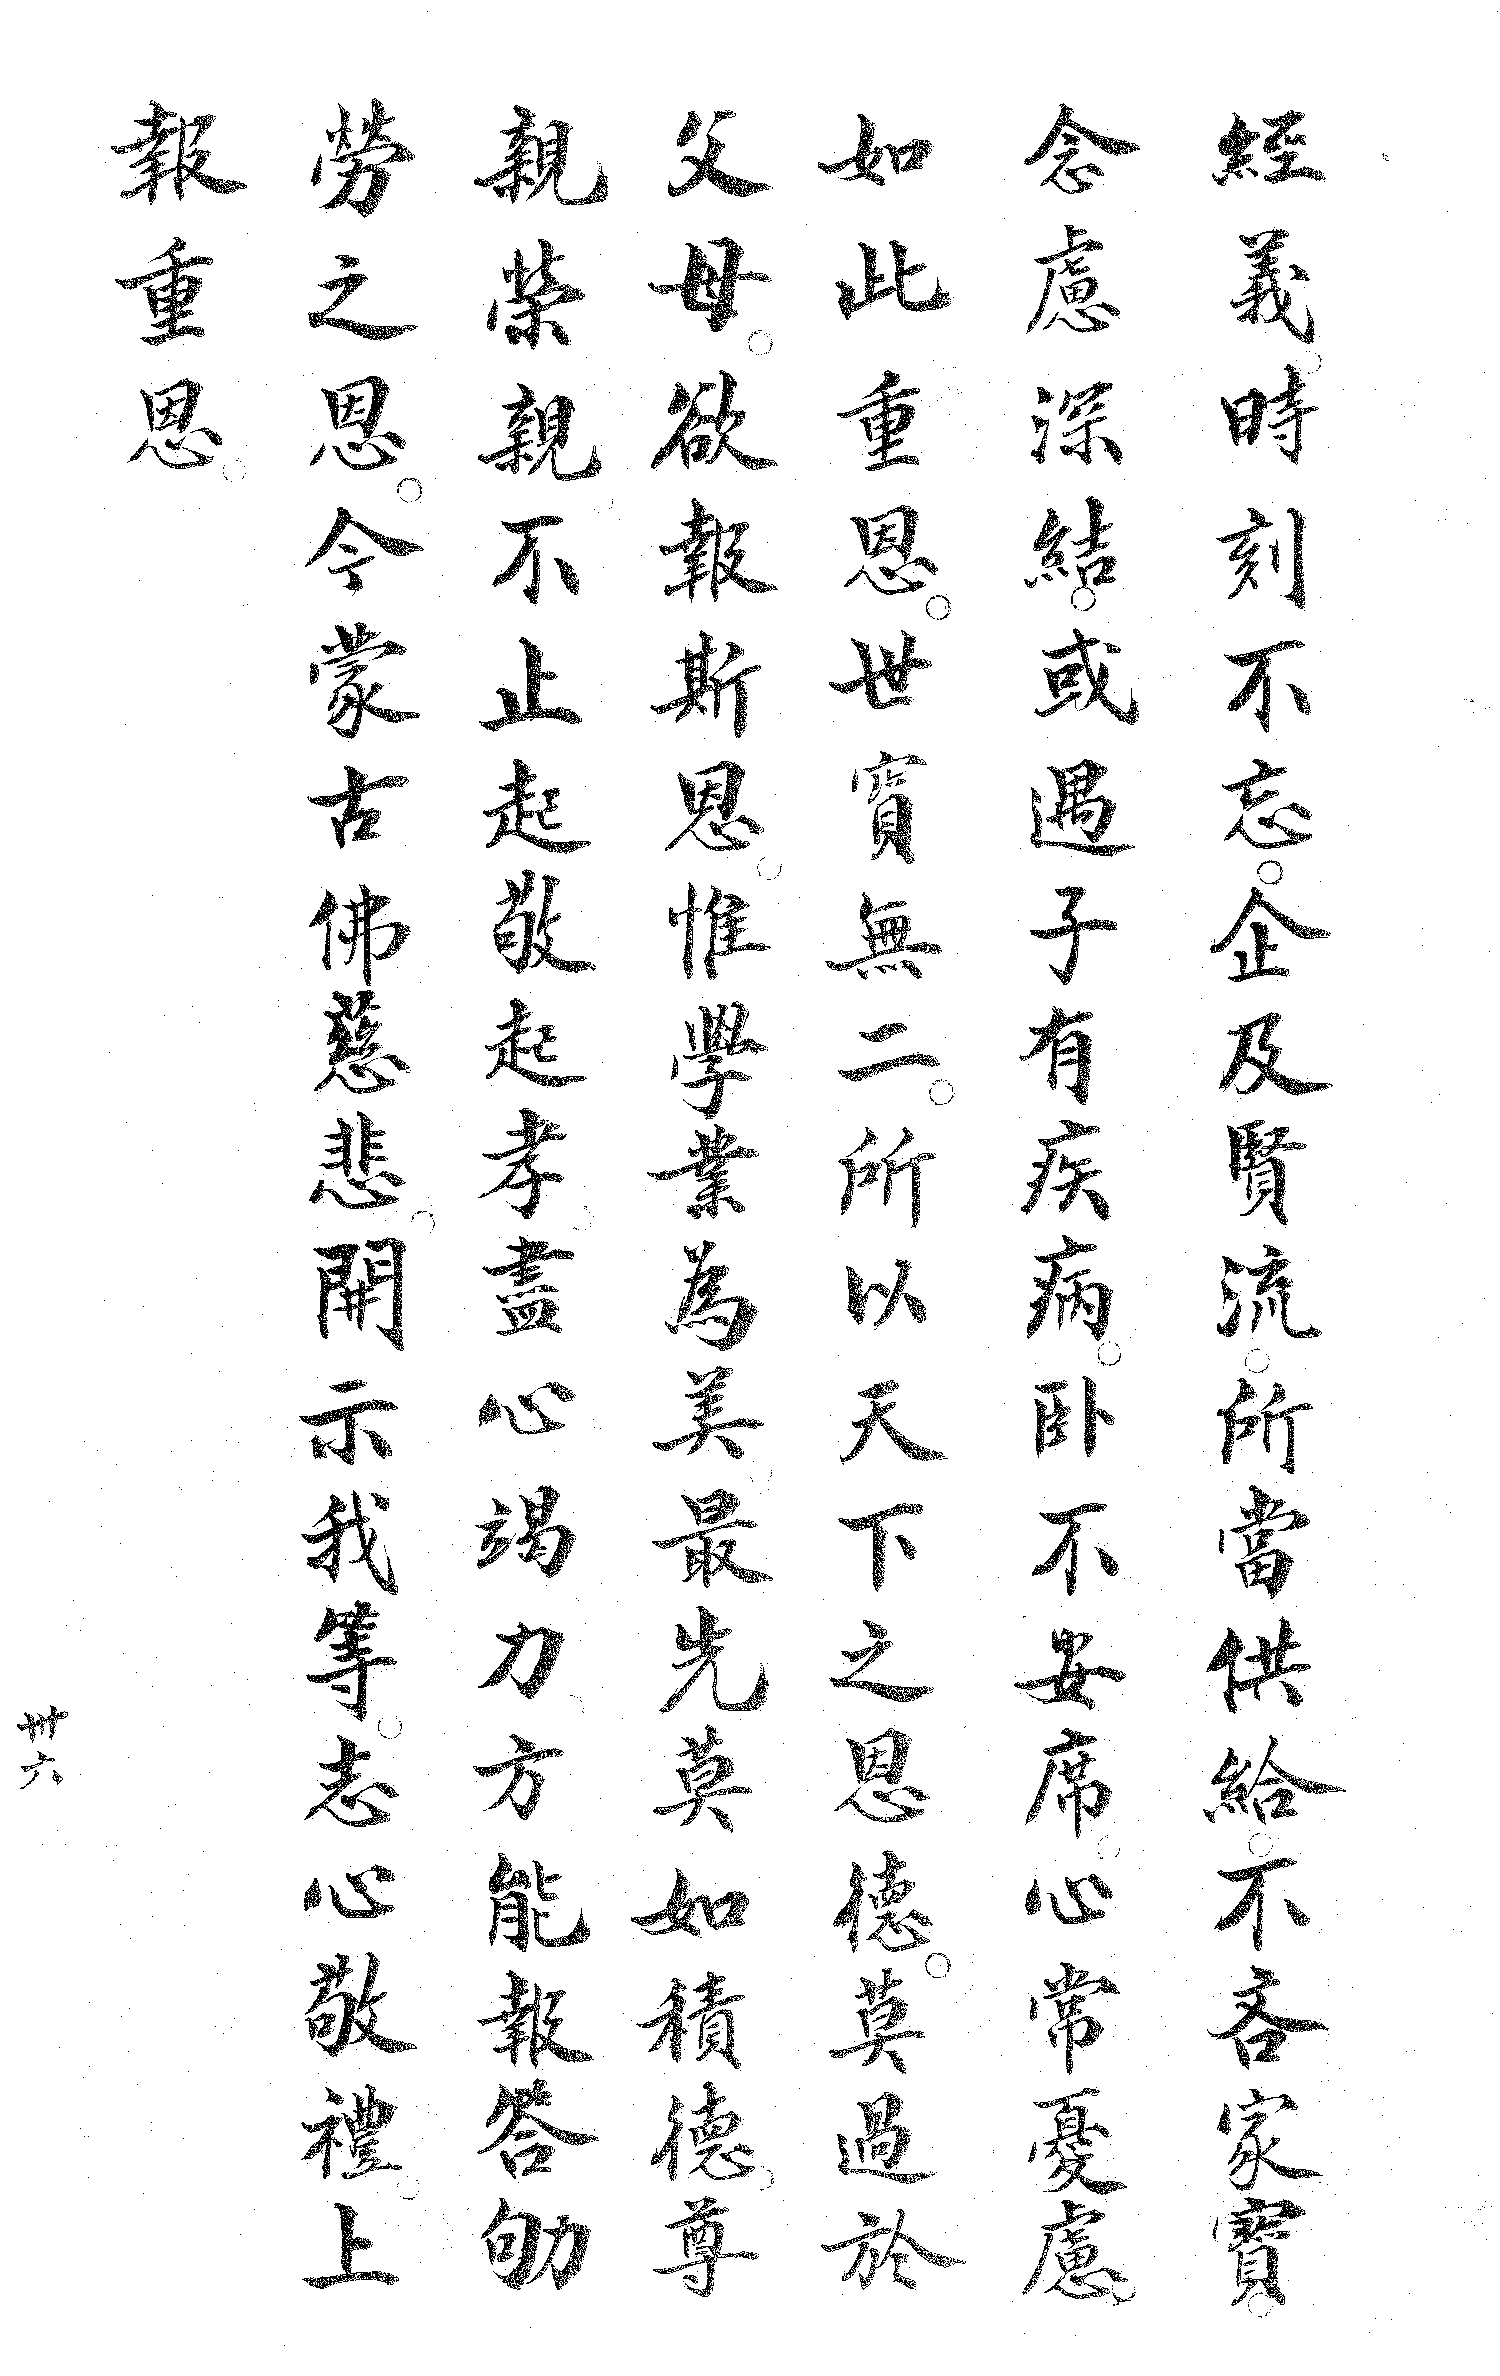 經義。時刻不忘。企及賢流。所當供給。不吝家寶。
念慮深結。或遇子有疾病。卧不安席。心常憂慮。
如此重恩。世實無二。所以天下之恩德。莫過於
父母。欲報斯恩。惟學業為美。最先莫如積德。尊
親榮親。不止起敬起孝。盡心竭力。方能報答劬
勞之恩。今蒙古佛慈悲。開示我等。志心敬禮。上
報重恩。
卅六